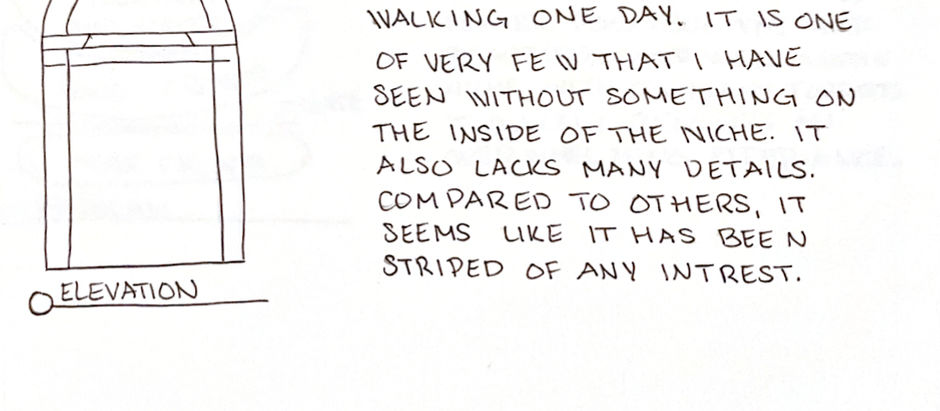 WALKING ONE DAY. IT IS ONE
OF VERY FEW THAT I HAVE
SEEN WITHOUT SOMETHING ON
THE INSIDE OF THE NICHE. IT
ALSO LACKS MANY DETAILS.
COMPARED TO OTHERS, IT
SEEMS LIKE IT HAS BEEN
STRIPED OF ANY INTREST.
ELEVATION